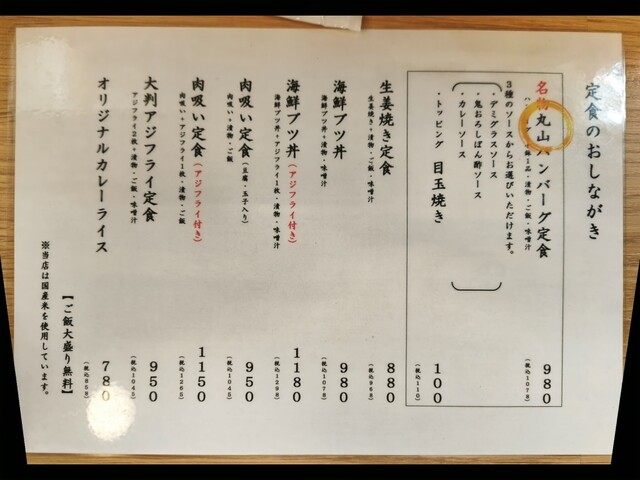 定食のおしながき
名物丸山ハンバーグ定食 980
小鉢1品・漬物・ご飯・味噌汁 (税込1078)
3種のソースからお選びいただけます。
・デミグラスソース
・鬼おろしぽん酢ソース
・カレーソース
・トッピング 目玉焼き 100
(税込110)
生姜焼き定食 880
生姜焼き+漬物・ご飯・味噌汁 (税込968)
海鮮ブツ丼 980
海鮮ブツ丼+漬物・味噌汁 (税込1078)
海鮮ブツ丼(アジフライ付き) 1180
海鮮ブツ丼+アジフライ1枚・漬物・味噌汁 (税込1298)
肉吸い定食(豆腐・玉子入り) 950
肉吸い+漬物・ご飯 (税込1045)
肉吸い定食(アジフライ付き) 1150
肉吸い+アジフライ1枚・漬物・ご飯 (税込1265)
大判アジフライ定食 950
アジフライ2枚+漬物・ご飯・味噌汁 (税込1045)
オリジナルカレーライス 780
(税込858)
【ご飯大盛り無料】
※当店は国産米を使用しています。